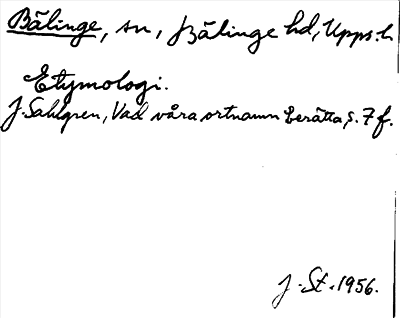 Bälinge, sn, Bälinge hd, Upps. l.
Etymologi.
J. Sahlgren, Vad våra ortnamn berätta, s. 7 f.
J. St. 1956.